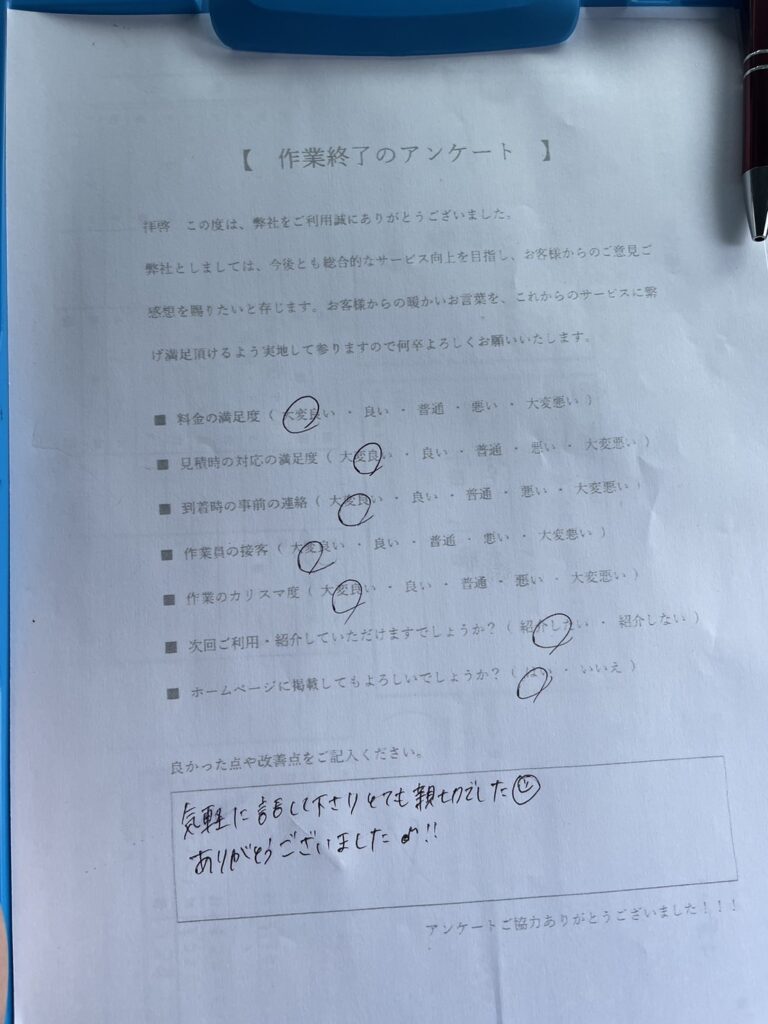 【 作業終了のアンケート 】
拝啓 この度は、弊社をご利用誠にありがとうございました。
弊社としましては、今後とも総合的なサービス向上を目指し、お客様からのご意見ご
感想を賜りたいと存じます。お客様からの暖かいお言葉を、これからのサービスに繋
げ満足頂けるよう実地して参りますので何卒よろしくお願いいたします。
■ 料金の満足度（ 大変良い ・ 良い ・ 普通 ・ 悪い ・ 大変悪い ）
■ 見積時の対応の満足度（ 大変良い ・ 良い ・ 普通 ・ 悪い ・ 大変悪い ）
■ 到着時の事前の連絡（ 大変良い ・ 良い ・ 普通 ・ 悪い ・ 大変悪い ）
■ 作業員の接客（ 大変良い ・ 良い ・ 普通 ・ 悪い ・ 大変悪い ）
■ 作業のカリスマ度（ 大変良い ・ 良い ・ 普通 ・ 悪い ・ 大変悪い ）
■ 次回ご利用・紹介していただけますでしょうか？（ 紹介したい ・ 紹介しない ）
■ ホームページに掲載してもよろしいでしょうか？（ はい ・ いいえ ）
良かった点や改善点をご記入ください。
気軽に話して下さりとても親切でした
ありがとうございました♪!!
アンケートご協力ありがとうございました！！！